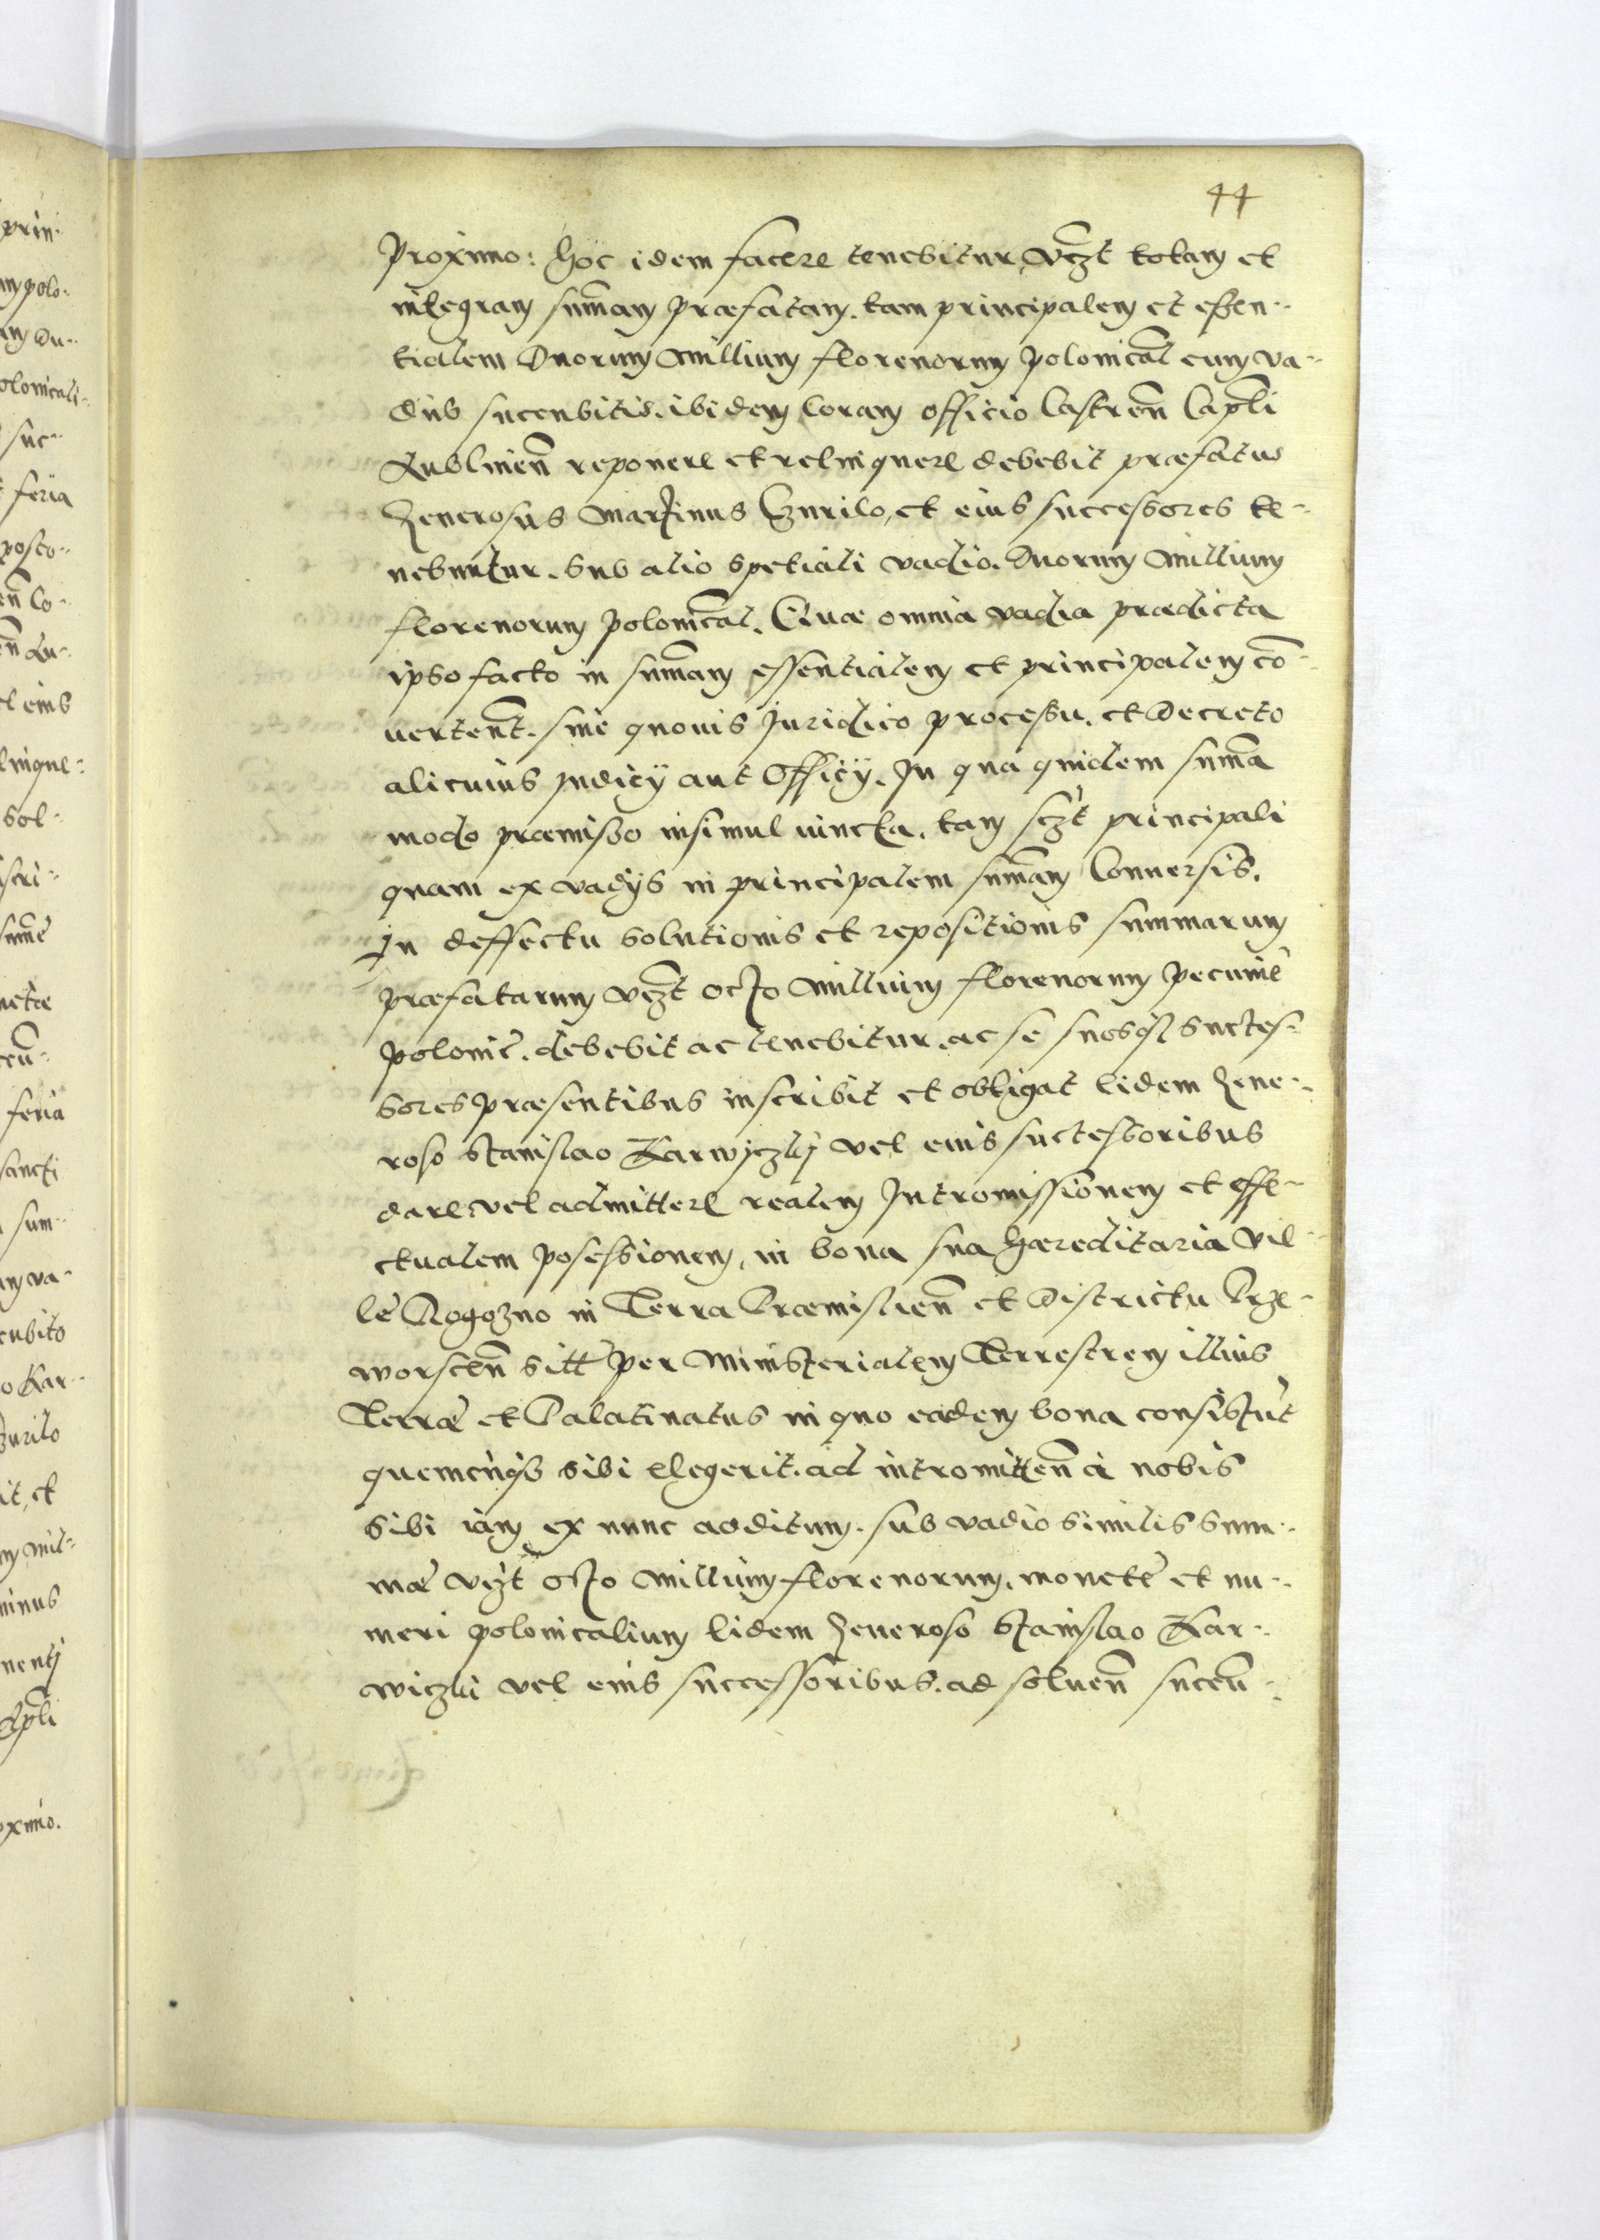 44
Proximo: hoc idem facere tenebitur, vczt totam et
integram summam præfatam, tam principalem et essen-
tialem Duorum Millium florenorum polonical cum va-
diis succubitis, ibidem Coram officio Castren Capli
Lublinen reponere et relinquere debebit præfatus
Generosus Martinus Czurilo, et eius successores te-
nebuntur, sub alio speciali vadio, Duorum Millium
florenorum polonical. Quæ omnia vadia prædicta
ipso facto in summam essentialem et principalem con-
uertent, sine quouis Juridico processu, et Decreto
alicuius Judicÿ aut Officÿ. In qua quidem summa
modo præmisso insimul iuncta, tam sczt principali
quam ex vadÿs in principalem summam Conuersis,
In deffectu solutionis et repositionis summarum
præfatarum vczt octo Millium florenorum pecuniæ
poloniæ, debebit ac tenebitur, ac se suosq; succes-
sores præsentibus inscribit et obligat eidem Gene-
roso Stanislao Karwyczky vel eius successoribus
dare vel admittere realem Intromissionem et effe-
ctualem possessionem, in bona sua hæreditaria vil-
læ Rogozno in Terra Præmislien et Districtu Prze-
worscen sitt per Ministerialem Terrestrem illius
Terræ et Palatinatus in quo eadem bona consistunt
quemcunq; sibi elegerit, ad intromitten a nobis
sibi iam ex nunc additum, sub vadio similis sum-
mæ vczt octo Millium florenorum, monetæ et nu-
meri polonicalium eidem Generoso Stanislao Kar-
wiczki vel eius successoribus, ad soluen succu-
prin-
m polo-
am Du-
olonicali-
suc-
feria
posto-
en Co-
en Lu-
el eius
linque-
sol-
scri-
summæ
netæ
feria
sancti
sum-
m va-
cubito
o Kar-
zurilo
it, et
m mil-
minus
nentj
Capli
oximo.